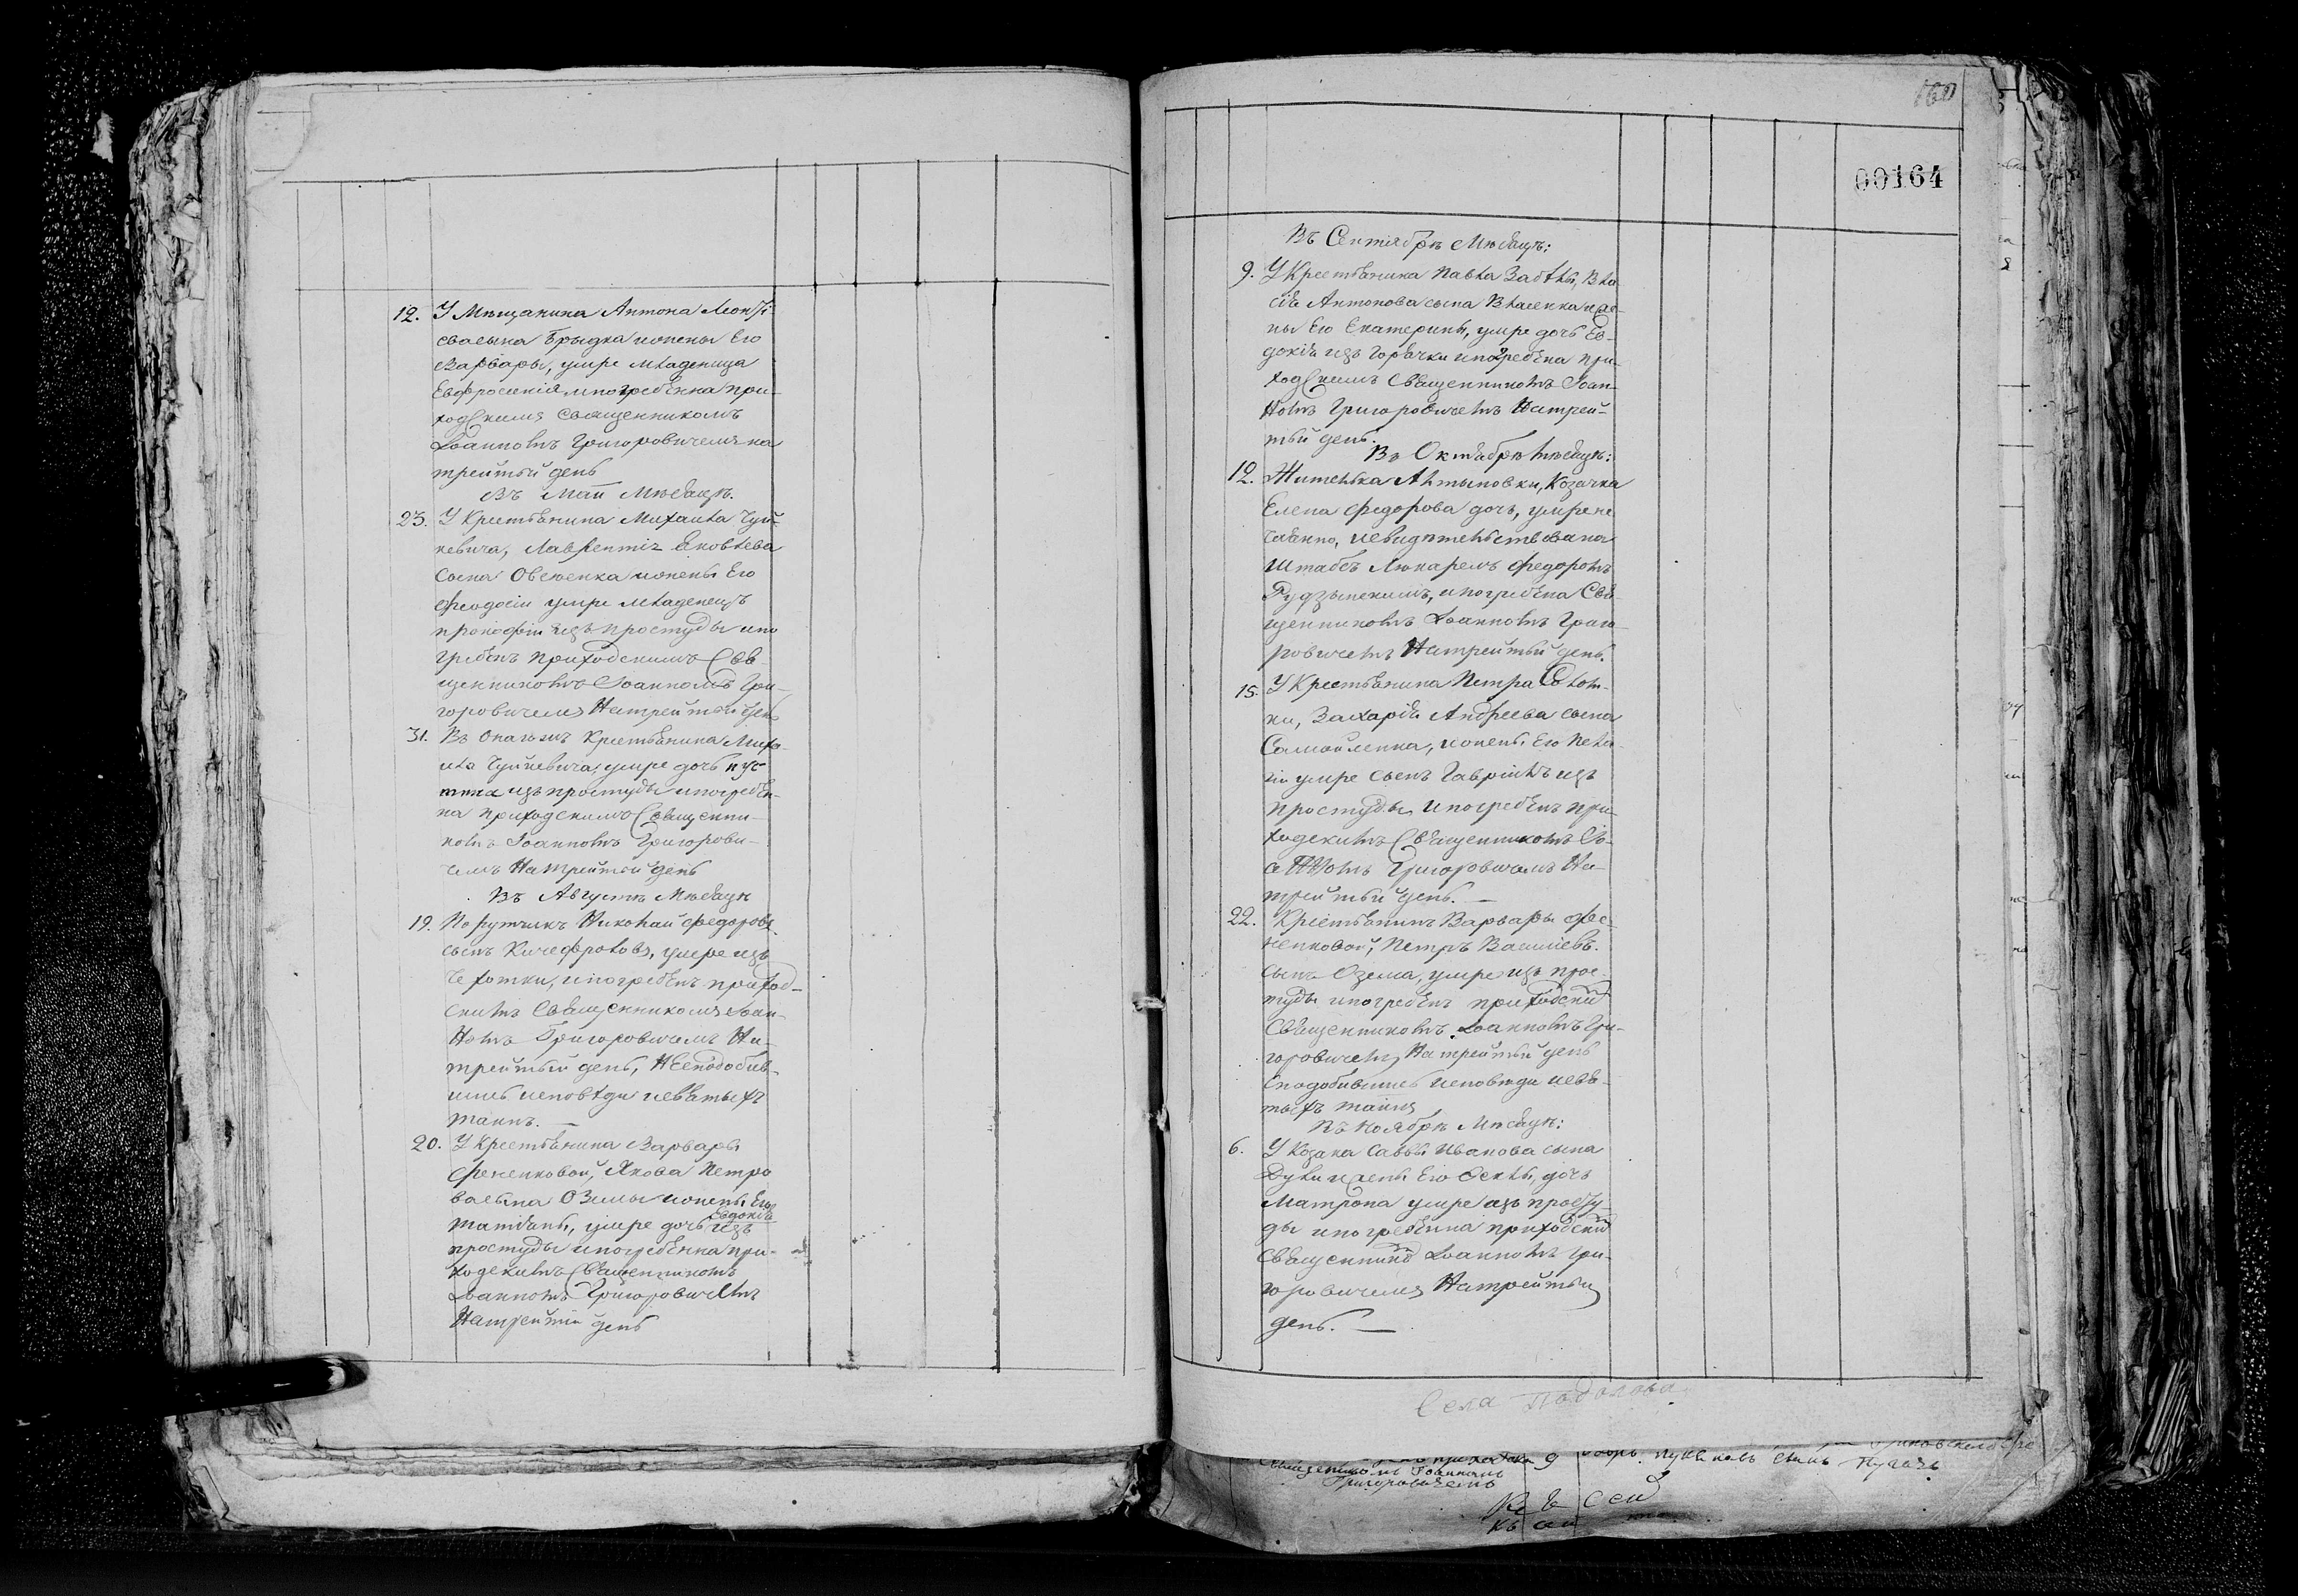 12. У Мѣщанина Антона Леонті
сва сына Брыдка ижены Его
Варвары, умре младеница
Евфросинія ипогребѣнна при
ходскимъ священникомъ
Іоанномъ Григоровичемъ на
трейтый день
Въ Маи Мѣсяцѣ.
23. У Крестьянина Михаила Чуй
кевича, Лаврентія Яковлева
сына Овсіенка ижены Его
Феодосіи умре младенецъ
прокофій изъ простуды ипо
гребѣнъ приходскимъ Свя
щенникомъ Іоанномъ Гри
горовичемъ Натрейтый день
31. Въ Крестьянина Миха
ила Чуйкевича, умре дочь
изъ простуды ипогребѣн
на приходскимъ Священни
комъ Іоанномъ Григорови
чемъ Натрейтый день
Въ Августѣ Мѣсяцѣ
19. Порутчикъ Николай Федоровъ
сынъ умре изъ
чехотки, ипогребѣнъ приход
скимъ Священникомъ Іоан
номъ Григоровичемъ На
трейтый день, Несподобив
шись исповѣди исвятыхъ
таинъ.
20. У Крестьянина Варвары
Фененковой, Якова Петро
ва сына Оземы ижены Его
Татіаны, умре дочь Евдокія изъ
простуды ипогребѣнна при
ходскимъ Священникомъ
Іоанномъ Григоровичемъ
Натрейтій день
160
00164
Въ Сентябрѣ Мѣсяцѣ:
9. У Крестьянина Павла Забѣлы, Вла
сія Антонова сына Власенка иже
ны Его Екатерины, умре дочь Ев
докія изъ горячки ипогребѣна при
ходскимъ Священникомъ Іоан
номъ Григоровичемъ Натрей
тый день.
Въ Октябрѣ мѣсяцѣ:
12. Жителька Алтыновки, Козачка
Елена Федорова дочь, умре не
чаянно, исвидѣтельствована
Штабъ Лѣкаремъ Федоромъ
Рудзынскимъ, ипогребѣна Свя
щенникомъ Іоанномъ Григо
ровичемъ Натрейтый день.
15. У Крестьянина Петра
ки, Захарія Андреева сына
Самойленка, ижены Его Пела
гіи умре сынъ Гавріилъ изъ
простуды ипогребѣнъ при
ходскимъ Священникомъ Іо
анномъ Григоровичемъ На
трейтый день.
22. Крестьянинъ Варвары Фе
ненковой, Петръ Василіевъ
сынъ Озема, умре изъ прос
туды ипогребѣнъ приходским
Священникомъ Іоанномъ Гри
горовичемъ Натрейтый день
Сподобившись исповѣди исвя
тыхъ таинъ
Въ Ноябрѣ Мѣсяцѣ:
6. У Козака Саввы Иванова сына
Дули ижены Его Феклы, дочь
Матрона умре изъ просту
ды ипогребѣнна приходским
Священником Іоанномъ Гри
горовичемъ Натрейтый
день.
Села Подолова
Священикомъ Іоанномъ
Григоровичемъ